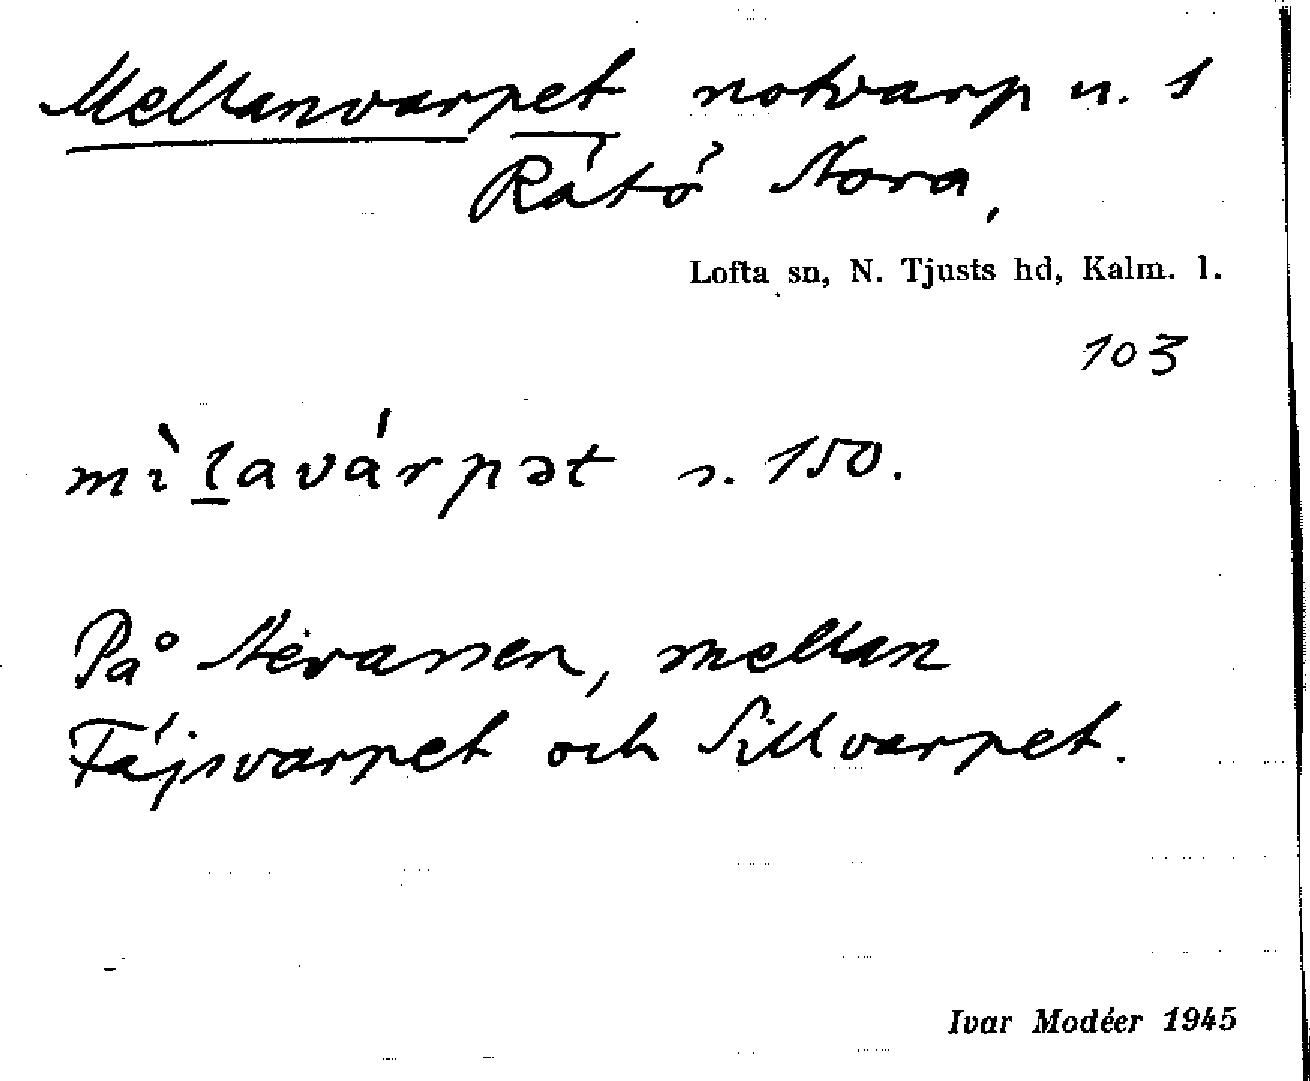 Mellanvarpet notvarp n. 1
Råtö Nora,
Lofta sn, N. Tjusts hd, Kalm. l.
103
mìḻavárpət s. 150.
På mellan
och Sillvarpet.
Ivar Modéer 1945